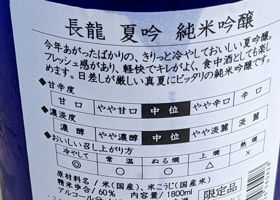 長龍 夏吟 純米吟醸
今年あがったばかりの、きりっと冷やしておいしい夏吟醸。
フレッシュ感があり、軽快でキレがよく、食中酒としても楽し
めます。日差しが厳しい真夏にピッタリの純米吟醸です。
◆甘辛度
甘口 やや甘口 中位 やや辛口 辛口
◆濃淡度
濃醇 やや濃醇 中位 やや淡麗 淡麗
◆おいしい召し上がり方
冷やして 常温 ぬる燗 上燗 熱燗
◎ ○ ○ △ ×
原材料名/米(国産)、米こうじ(国産米)
精米歩合/60% 内容量/1800ml 限定品
アルコール分